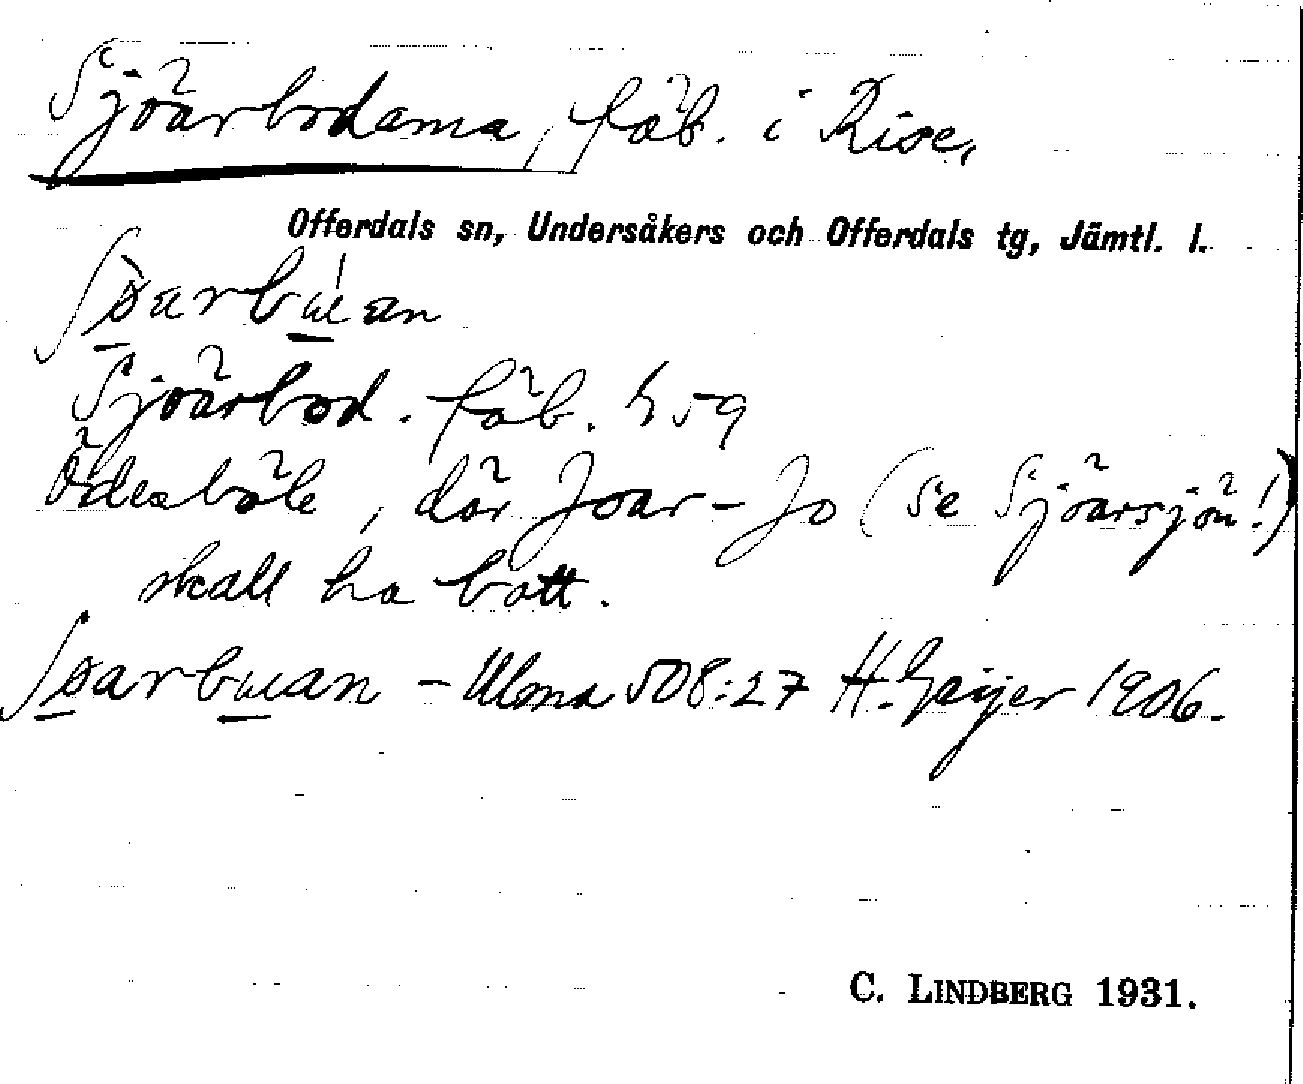 Sjöarbodarna, fäb. i Rise,
Offerdals sn, Undersåkers och Offerdals tg, Jämtl. l.
ʃøarbuan
Sjöarbod. fäb. h 59
Ödesböle, där Joar-Jo (se Sjöarsjön!)
skall ha bott.
ʃøarbuan - Ulma 508:27 H. Geijer 1906.
C. LINDBERG 1931.